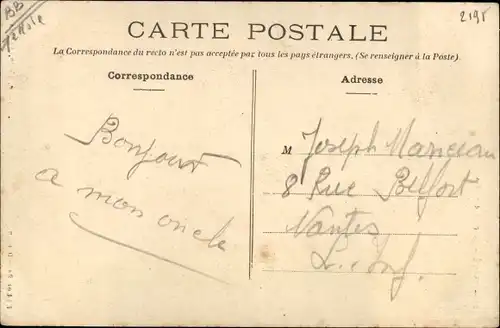 BB
2195
CARTE POSTALE
La Correspondance du recto n'est pas acceptée par tous les pays étrangers, (Se renseigner à la Poste).
Correspondance
Adresse
Bonjour
a mon oncle
M Joseph Manceau
8 Rue Belfort
Nantes
L. Inf.